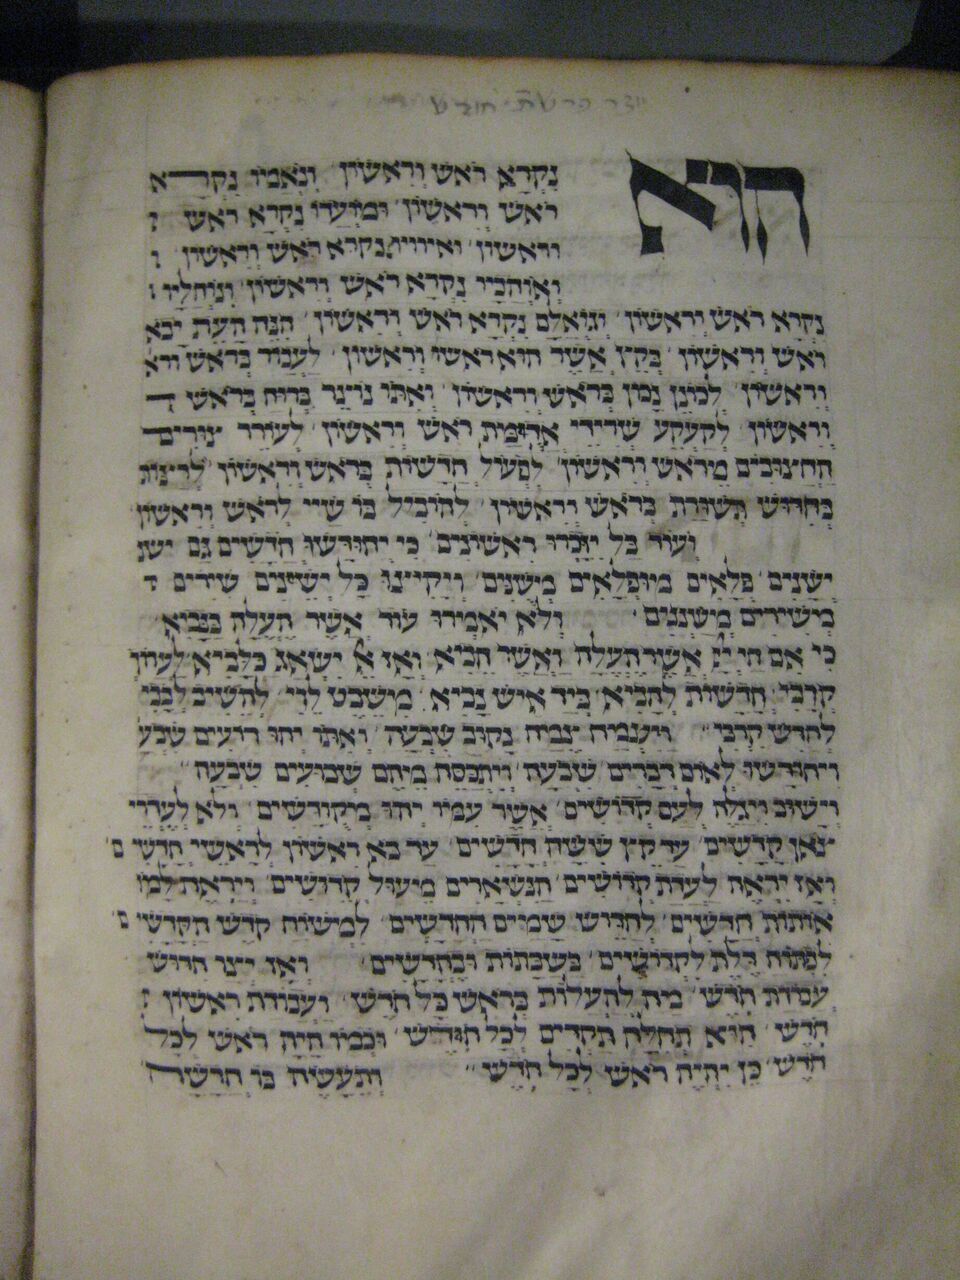 יוצר פרשת חודש
הוא נקרא ראש וראשון ונאמיו נקרא
ראש וראשון ומועדו נקרא ראש
וראשון ואיוויה נקרא ראש וראשון
ואוהביו נקרא ראש וראשון ונוחליו
נקרא ראש וראשון וגואלם נקרא ראש וראשון הנה העת יבא
ראש וראשון בקץ אשר הוא ראש וראשון לעמוד בראש
וראשון לכונן נמן בראש וראשון ואתו נוינר ברוח בראש
וראשון לקעקע שרידי אדומית ראש וראשון לעורר
מראש וראשון לפעול חדשות בראש וראשון
בחדוש תשורת בראש וראשון להוביל בו שיי לראש וראשון
ועוד כל יזמרו ראשונים כי יחודשו חדשים גם ישנ
ישנים פלאים מופלאים משנים כל ישינים שירים
משירים משוננים ולא יאמרו עוד אשר העלה בנביא
כי אם חי יי אשר העלה ואשר הביא ואז אל ישאג כלביא לעיין
קרבי חדשות להביא ביד איש נביא משבט לוי להשיב לבבי
לחדש קרבי ויצמיח צמח נקוב שבעה ואתו יהו רועים שבע
ויחודשו לאום דברים שבעה ויתכסה מיהם שמועים שבעה
וישוב ויגלה לעם קדושים אשר עמו יהו מקודשים ולא לעדי
צאן קדשים עד קץ ששה חדשים עד בא ראשון לראשי חדשי ם
ואז יראה לעדת קדושים הנשארים מעול קדושים ויראה למו
אותות חדשים לחדש שמים החדשים למשוח קדש הקדשי ם
לפתוח דלת לקדושים בשבתות ובחדשים ואז יצו חדוש
עמודת חדש מיה להעלות בראש כל חדש ועבודת ראשון
חדש הוא תחלה הקדים לכל חודש וכמו היה ראש לכל
חדש כן יהיה ראש לכל חדש ותעשה בו חדשה